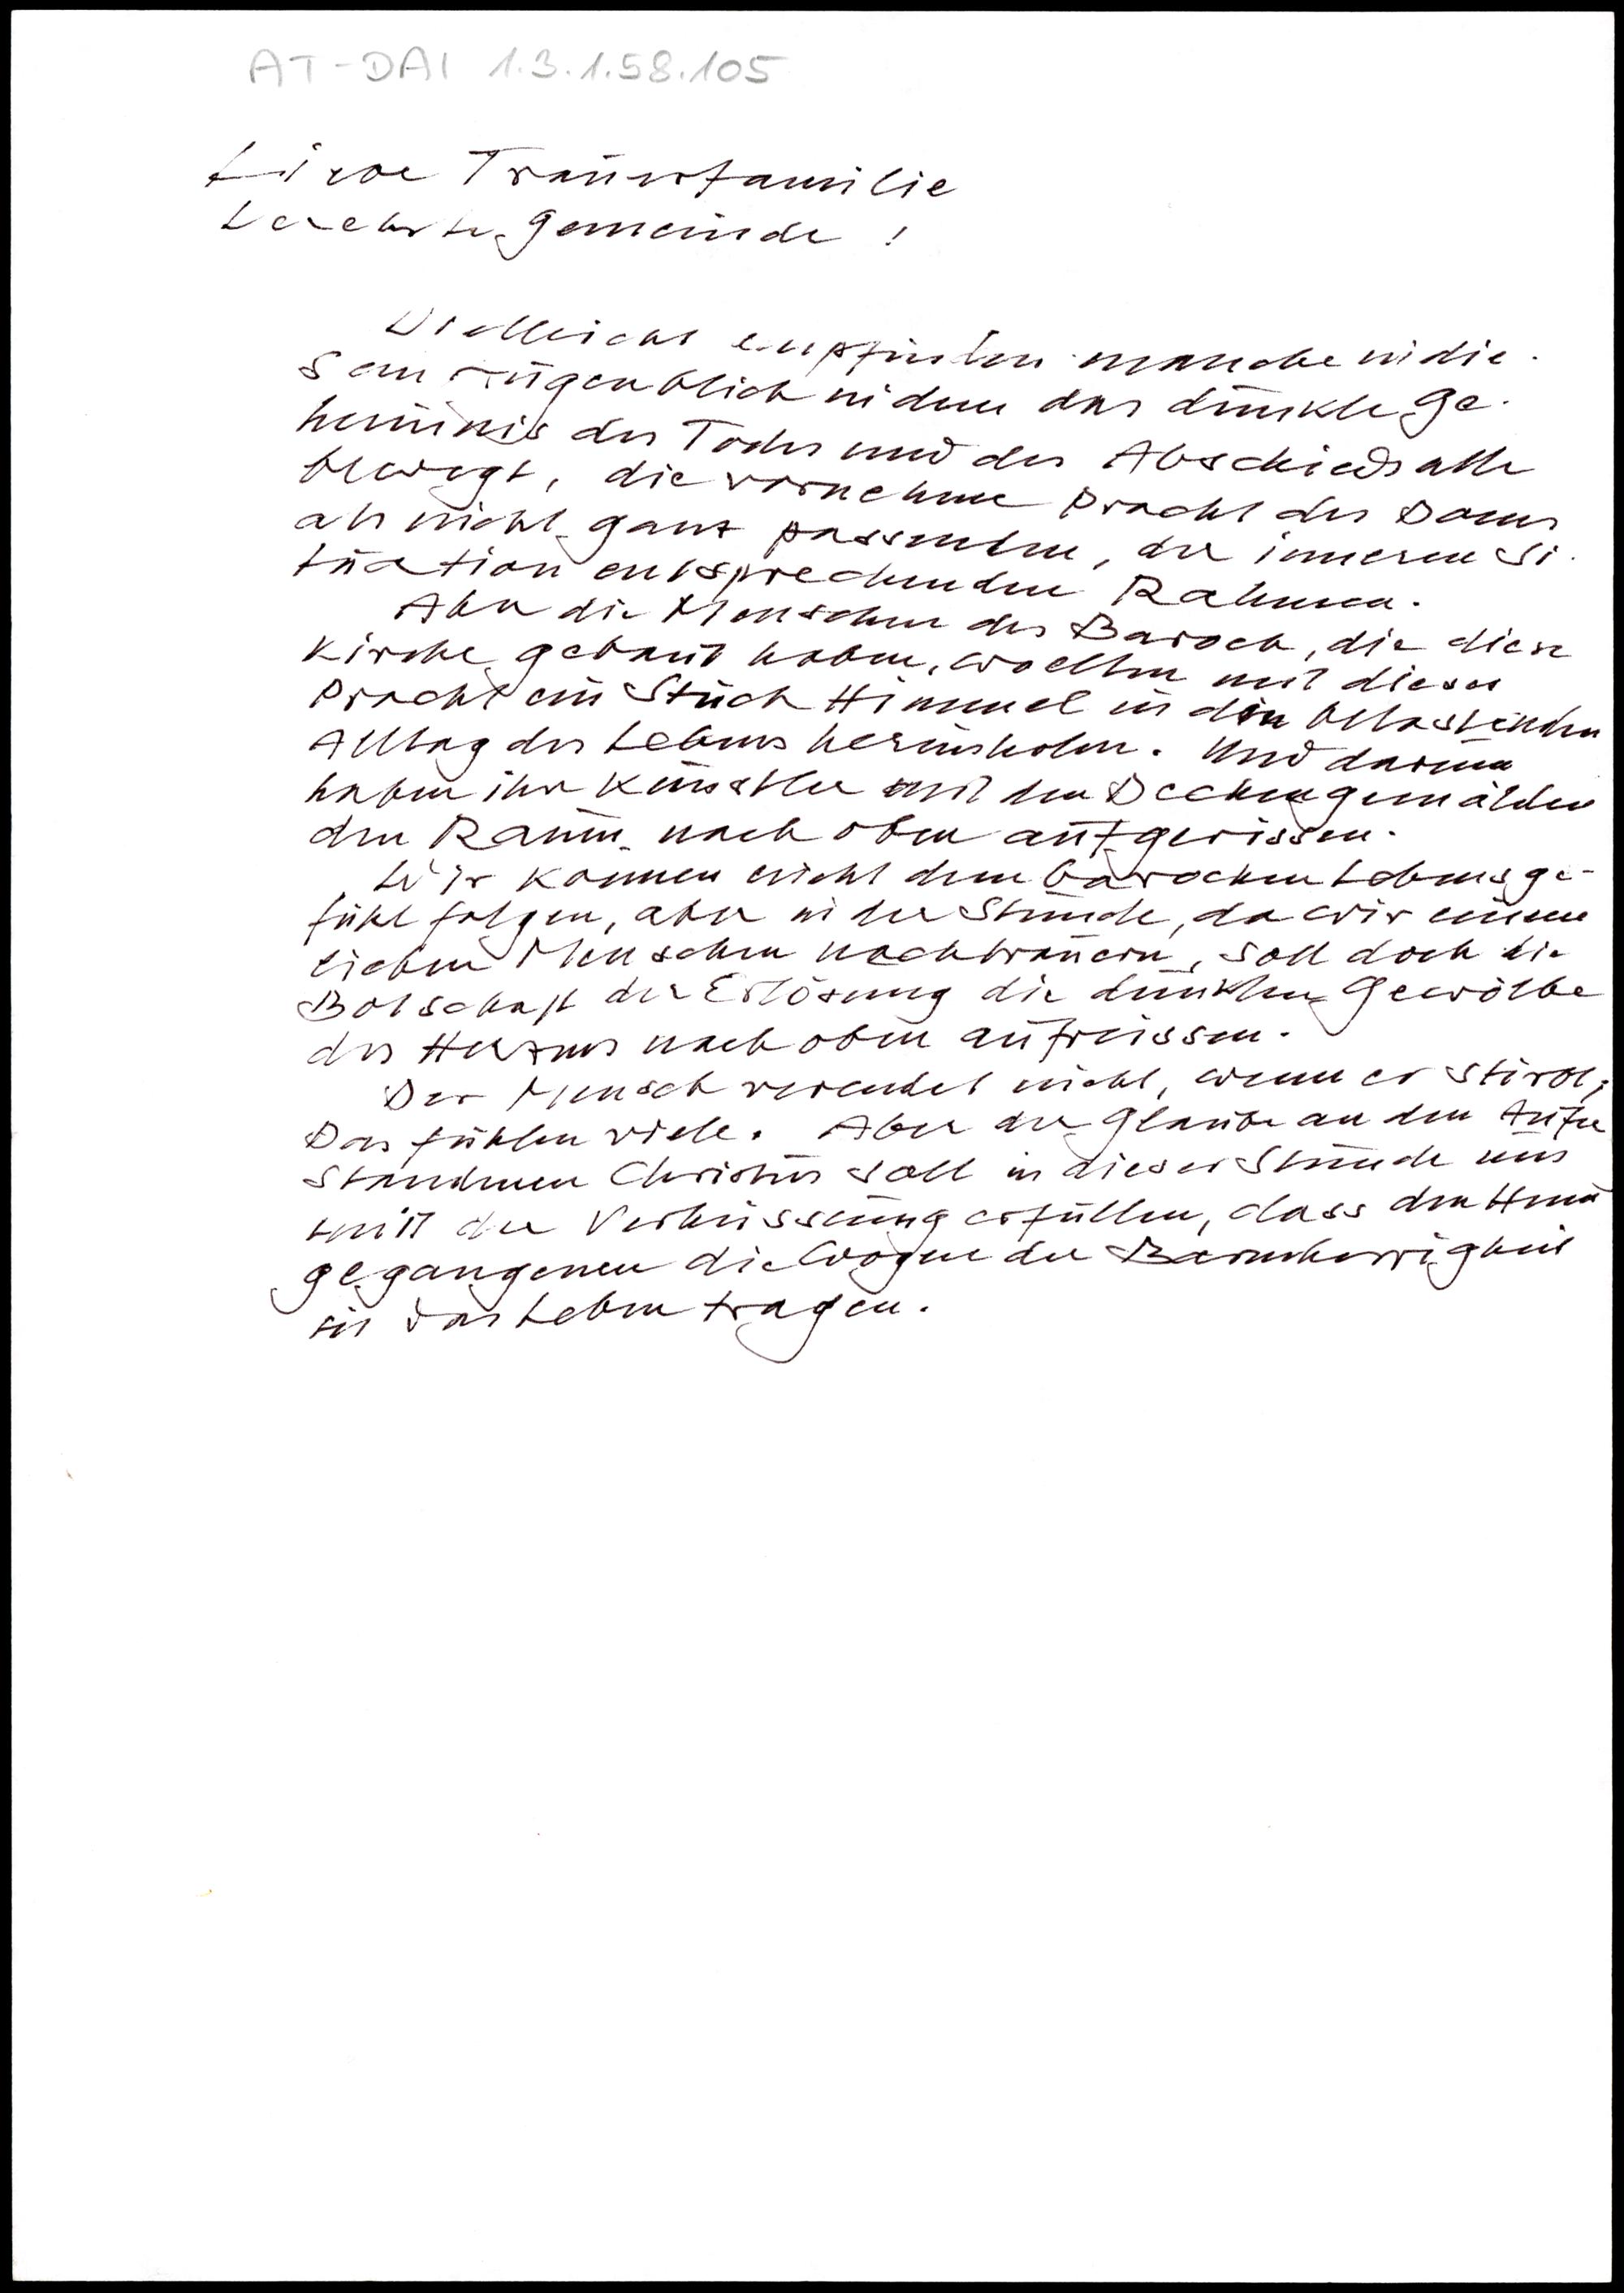 AT-DAI 1.3.1.58.105
Liebe Trauerfamilie
Verehrte Gemeinde !
Vielleicht empfinden manche in die-
sem Augenblick in dem das dunkle Ge-
heimnis des Todes und des Abschieds alle
bewegt, die vornehme Pracht des Doms
als nicht ganz passenden, der inneren Si-
tuation entsprechenden Rahmen.
Aber die Menschen des Barock, die diese
Kirche gebaut haben, wollten mit dieser
Pracht ein Stück Himmel in den belastenden
Alltag des Lebens hereinholen. Und darum
haben ihre Künstler mit den Deckengemälden
den Raum nach oben aufgerissen.
Wir können nicht dem barocken Lebensge-
fühl folgen, aber in der Stunde, da wir einem
lieben Menschen nachtrauern, soll doch die
Botschaft der Erlösung die dunklen Gewölbe
des Herzens nach oben aufreissen.
Der Mensch verendet nicht, wenn er stirbt,
Das fühlen viele. Aber der Glaube an den Aufer
standenen Christus soll in dieser Stunde uns
mit der Verheissung erfüllen, dass den Heim
gegangenen die Wogen der Barmherzigkeit
in das Leben tragen.